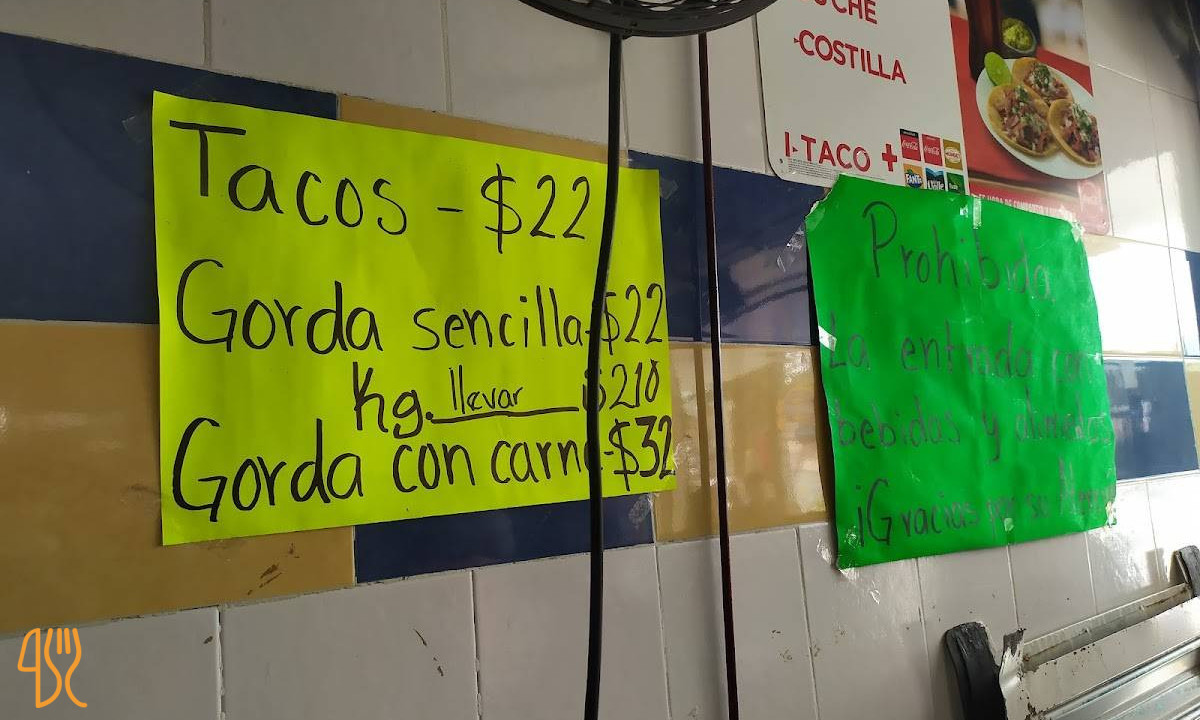 Tacos - $22
Gorda sencilla- $22
Kg. llevar $210
Gorda con carne-$32
-COSTILLA
1-TACO +
Prohibida
La entrada con
bebidas y alimentos
¡Gracias por su